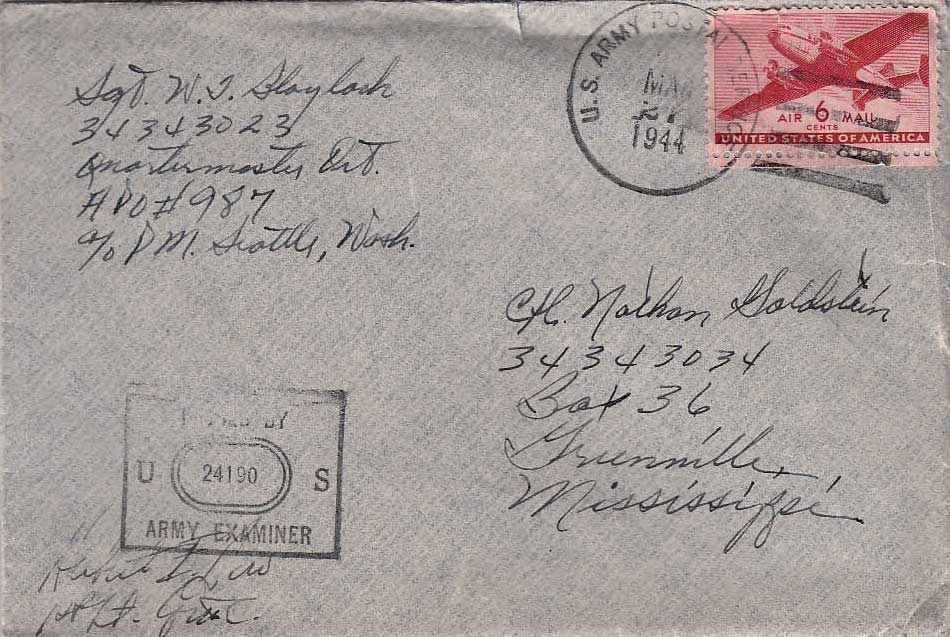 Sgt. W. J. Blaylock
34343023
Quartermaster Det.
APO #987
c/o P.M. Seattle, Wash.
U.S. ARMY POSTAL SERVICE
MAR
27
1944
AIR 6 MAIL
CENTS
UNITED STATES OF AMERICA
Cpl. Nathan Goldstein
34343034
Box 36
Greenville,
Mississippi
BY
U 24190 S
ARMY EXAMINER
1st Lt.